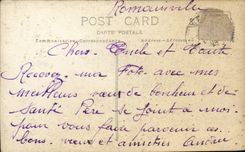 Romainville
POST CARD
CARTE POSTALE
Chers Oncle et Tante
Recevez ma Foto avec mes
meilleurs vœux de bonheur et de
Santé Père se joint à moi
pour vous faire parvenir ses
bons vœux et amitiés André